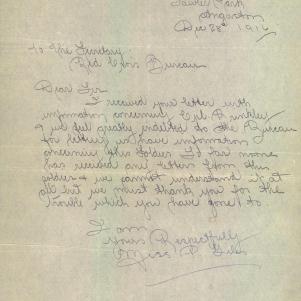 Dec 28th 1916
To The Secretary
Red Cross Bureau
Dear Sir
I received your letter with
information concerning Cpl Brinkley
& we feel greatly indebted to the Bureau
for letting us have information
concerning this soldier so far no one
has received any letters from this
soldier & we cannot understand it at
all but we must thank you for the
trouble which you have gone to
I am
Yours Respectfully
Miss P